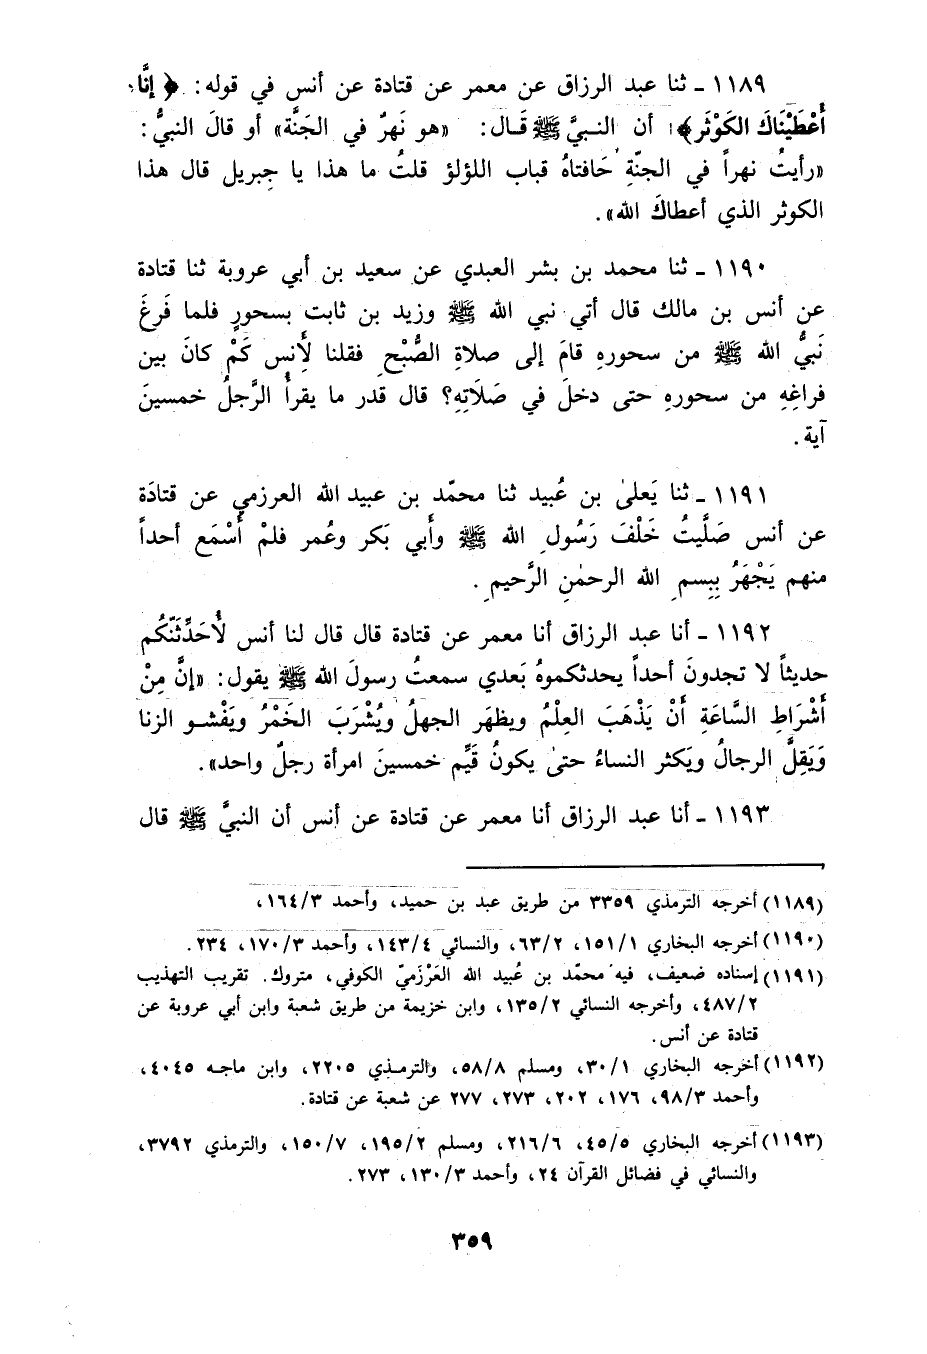 ١١٨٩ - ثنا عبد الرزاق عن معمر عن قتادة عن أنس في قوله: ﴿إنَّا
أَعْطَيْنَاكَ الكَوْثَر﴾ أن النبيَّ ﷺ قال: «هو نَهرٌ في الجَنَّة» أو قالَ النبيُّ:
«رأيتُ نهراً في الجنّةِ حَافتاهُ قباب اللؤلؤ قلتُ ما هذا يا جِبريل قال هذا
الكوثر الذي أعطاكَ الله».
١١٩٠ - ثنا محمد بن بشر العبدي عن سعيد بن أبي عروبة ثنا قتادة
عن أنس بن مالك قال أتي نبي الله ﷺ وزيد بن ثابت بسحورٍ فلما فَرغَ
نَبيُّ الله ﷺ من سحورهِ قامَ إلى صلاةِ الصُّبْحِ فقلنا لأَنس كَمْ كانَ بين
فراغِهِ من سحورهِ حتى دخلَ في صَلَاتِهِ؟ قال قدر ما يقرأُ الرَّجلُ خمسينَ
آية.
١١٩١ - ثنا يَعلىٰ بن عُبيد ثنا محمّد بن عبيد الله العرزمي عن قتادَة
عن أنس صَلَّيتُ خَلْفَ رَسُولِ الله ﷺ وأَبي بَكر وعُمر فلمْ أَسْمَع أحداً
منهم يَجْهَرُ بِبِسمِ الله الرحمٰنِ الرَّحيمِ.
١١٩٢ - أنا عبد الرزاق أنا معمر عن قتادة قال قال لنا أنس لأُحَدِّثَنّكُم
حديثاً لا تجدونَ أحداً يحدثكموهُ بَعدي سمعتُ رسولَ الله ﷺ يقول: «إنَّ مِنْ
أَشْرَاطِ السَّاعَةِ أَنْ يَذْهَبَ العِلْمُ ويظهَر الجهلُ ويُشْرَبَ الخَمْرُ ويَفْشو الزنا
وَيَقِلَّ الرجالُ ويَكثر النساءُ حتىٰ يكونُ قَيِّم خمسينَ امرأة رجلٌ واحد».
١١٩٣ - أنا عبد الرزاق أنا معمر عن قتادة عن أنس أن النبيَّ ﷺ قال
(١١٨٩) أخرجه الترمذي ٣٣٥٩ من طريق عبد بن حميد، وأحمد ١٦٤/٣،
(١١٩٠) أخرجه البخاري ١٥١/١، ٦٣/٢، والنسائي ١٤٣/٤، وأحمد ١٧٠/٣، ٢٣٤.
(١١٩١) إسناده ضعيف، فيه محمّد بن عُبيد الله العَرْزَميّ الكوفي، متروك. تقريب التهذيب
٤٨٧/٢، وأخرجه النسائي ١٣٥/٢، وابن خزيمة من طريق شعبة وابن أبي عروبة عن
قتادة عن أنس.
(١١٩٢) أخرجه البخاري ٣٠/١، ومسلم ٥٨/٨، والترمذي ٢٢٠٥، وابن ماجه ٤٠٤٥،
وأحمد ٩٨/٣، ١٧٦، ٢٠٢، ٢٧٣، ٢٧٧ عن شعبة عن قتادة.
(١١٩٣) أخرجه البخاري ٤٥/٥، ٢١٦/٦، ومسلم ١٩٥/٢، ١٥٠/٧، والترمذي ٣٧٩٢،
والنسائي في فضائل القرآن ٢٤، وأحمد ١٣٠/٣، ٢٧٣.
٣٥٩